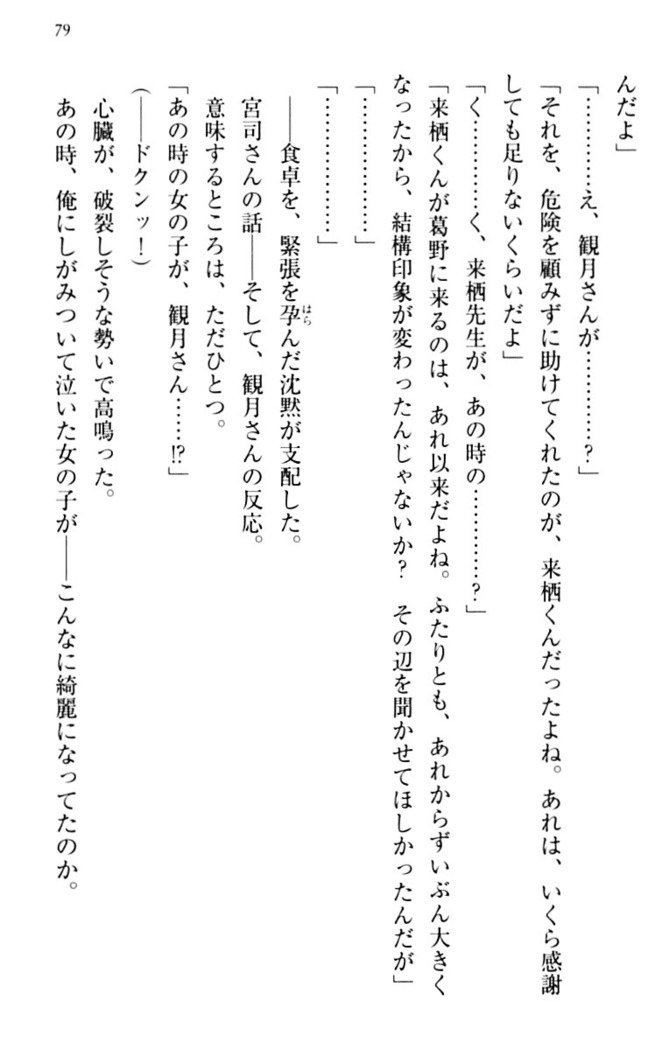 79
んだよ」
「…………え、観月さんが…………？」
「それを、危険を顧みずに助けてくれたのが、来栖くんだったよね。あれは、いくら感謝
しても足りないくらいだよ」
「く…………く、来栖先生が、あの時の…………？」
「来栖くんが葛野に来るのは、あれ以来だよね。ふたりとも、あれからずいぶん大きく
なったから、結構印象が変わったんじゃないか？　その辺を聞かせてほしかったんだが」
「………………」
「………………」
――食卓を、緊張を孕んだ沈黙が支配した。
はら
宮司さんの話――そして、観月さんの反応。
意味するところは、ただひとつ。
「あの時の女の子が、観月さん……!?」
（――ドクンッ！）
心臓が、破裂しそうな勢いで高鳴った。
あの時、俺にしがみついて泣いた女の子が――こんなに綺麗になってたのか。